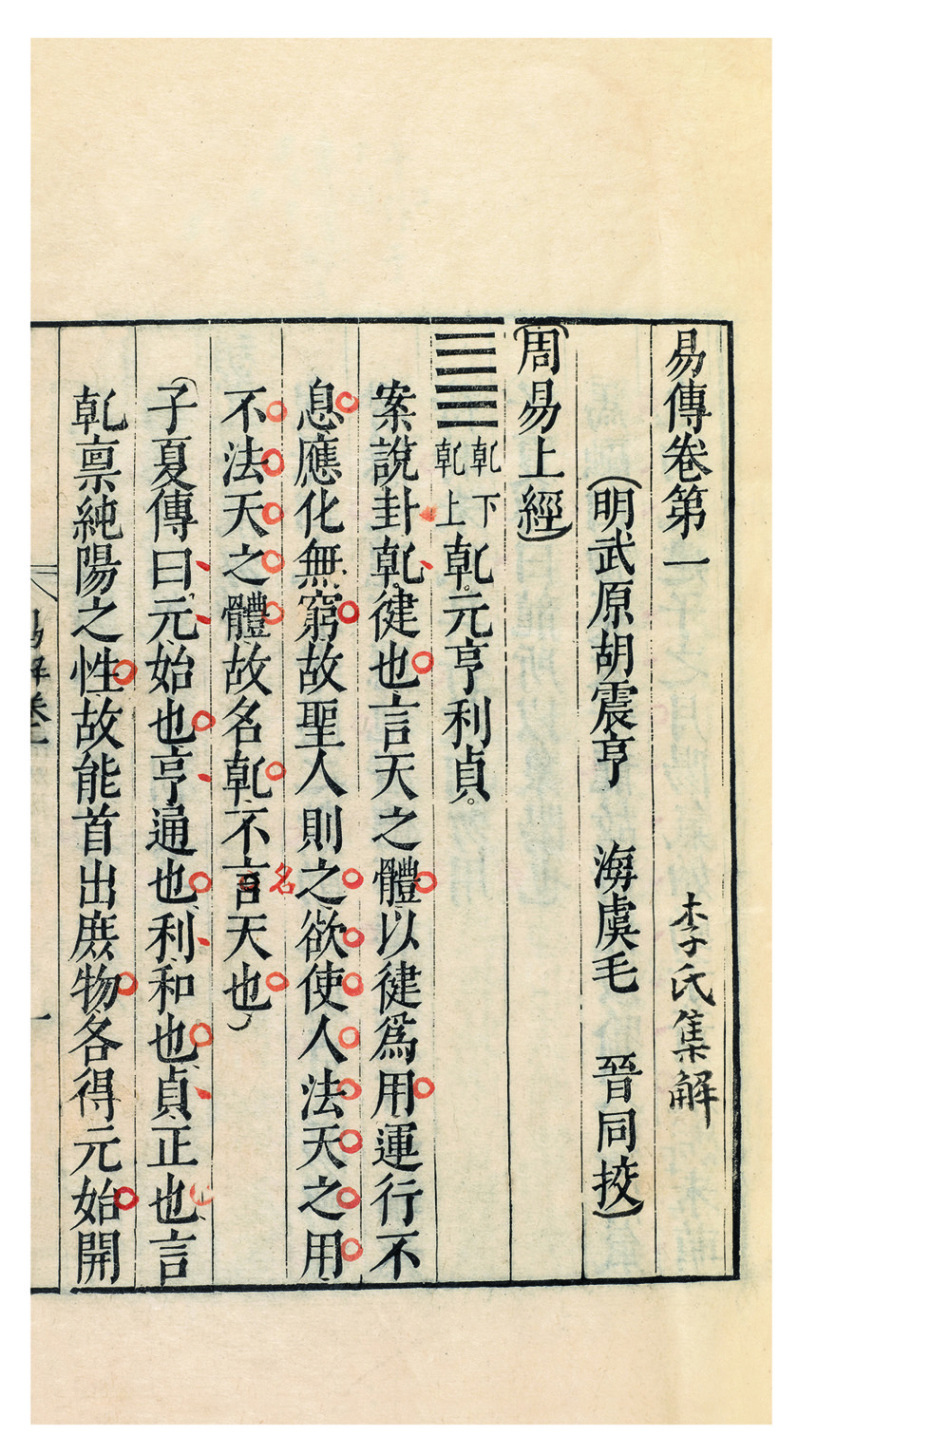 易傳卷第一 李氏集解
明武原胡震亨 海虞毛 晉同挍
周易上經
䷀ 乾下乾上 乾元亨利貞
案說卦乾健也言天之體以健爲用運行不
息應化無窮故聖人則之欲使人法天之用
不法天之體故名乾不言天也
名
子夏傳曰元始也亨通也利和也貞正也言
乾禀純陽之性故能首出庶物各得元始開
一